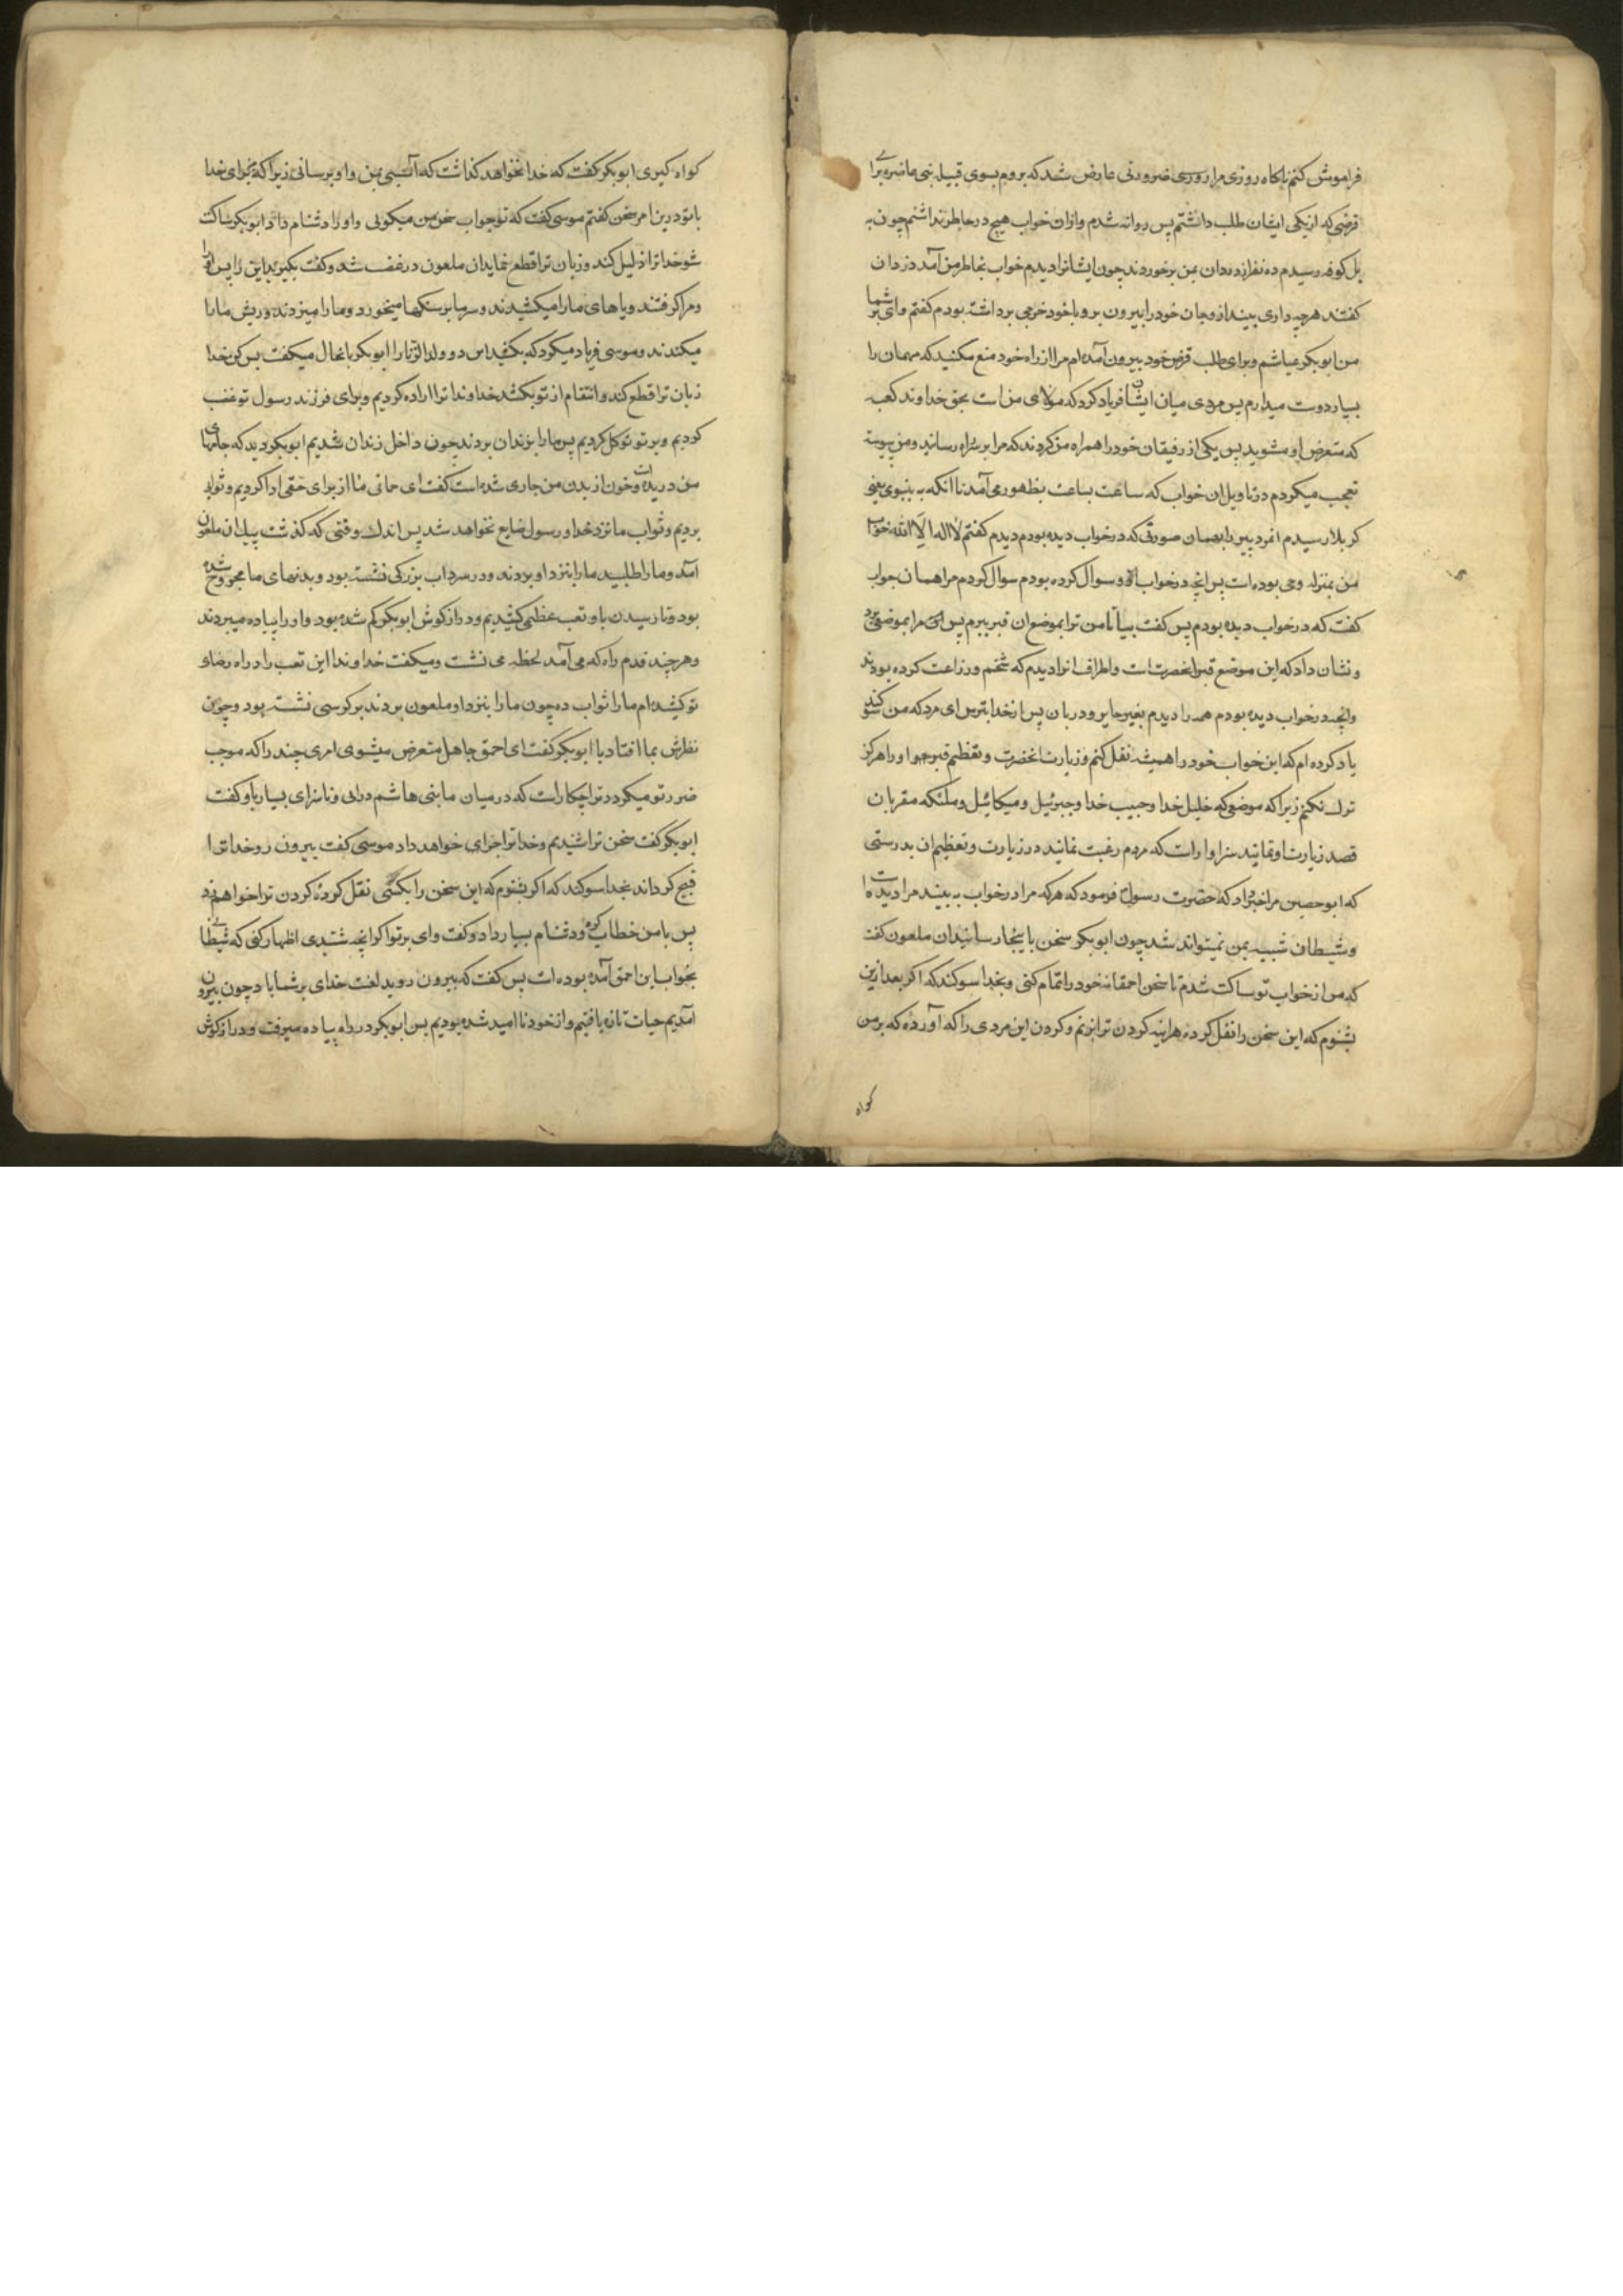 فراموش کنم ناکاه روزی مرا روزی ضرورتی عارض شد که بروم بسوی قبیله بنی غاضریه برای
قرضی که از یکی ایشان طلب داشتم پس روانه شدم و ازان خواب هیچ در خاطر نداشتم چون به
پل کوفه رسیدم ده نفر از دزدان بمن برخوردند چون ایشانرا دیدم خواب بخاطر من آمد دزدان
کفتند هرچه داری بینداز و جان خود را بیرون بر و با خود خرجی برداشته بودم کفتم وای بر شما
من ابوبکر عیاشم و برای طلب قرض خود بیرون آمده ام مرا از راه خود منع مکنید که مهمان را
بسیار دوست میدارم پس مردی میان ایشان فریاد کرد که مولای من است بحق خداوند کعبه
که متعرض او مشوید پس یکی از رفیقان خود را همراه من کردند که مرا بر سر راه رسانید و من پیوسته
تعجب میکردم در تاویل ان خواب که ساعت بساعت بظهور می آمد تا انکه به نینوی یعنی
کربلا رسیدم انمرد پیر را بهمان صورتی که در خواب دیده بودم دیدم کفتم لا اله الا الله خواب
من بمنزله وحی بوده است پس انچه در خواب از او سوال کرده بودم سوال کردم مرا همان جواب
کفت که در خواب دیده بودم پس کفت بیا تا من ترا بموضع ان قبر ببرم پس مرا بموضعی برد
و نشان داد که این موضع قبر انحضرت است و اطراف انرا دیدم که شخم و زراعت کرده بودند
وانچه در خواب دیده بودم همه را دیدم بغیر حایر و دربان پس از خدا بترس ای مرد که من سوکند
یاد کرده ام که این خواب خود را همیشه نقل کنم و زیارت انحضرت و تعظیم قبر او را هرکز
ترک نکنم زیرا که موضعی که خلیل خدا و حبیب خدا و جبرئیل و میکائیل و ملئکه مقربان
قصد زیارت او نمایند سزاوار است که مردم رغبت نمایند در زیارت و تعظیم ان بدرستی
که ابوحصین مرا خبر داد که حضرت رسول فرمود که هرکه مرا در خواب به بیند مرا دیده است
و شیطان شبیه بمن نمیتواند شد چون ابوبکر سخن باینجا رسانید ان ملعون کفت
که من از خواب تو ساکت شدم تا سخن احمقانه خود را تمام کنی و بخدا سوکند که اکر بعد ازین
بشنوم که این سخن را نقل کرده هراینه کردن ترا بزنم و کردن این مردی را که آورده که بر من
کواه
کواه کیری ابوبکر کفت که خدا نخواهد کذاشت که آسیبی بمن و او برسانی زیرا که برای خدا
با تو درین امر سخن کفتم موسی کفت که تو جواب سخن من میکوئی و او را دشنام داد ابوبکر ساکت
شو خدا ترا ذلیل کند و زبان ترا قطع نماید ان ملعون در غضب شد و کفت بکیرید این را پس او را
و مرا کرفتند و پاهای ما را میکشیدند و سرما بر سنکها میخورد و ما را میزدند و ریش ما را
میکندند و موسی فریاد میکرد که بکشید این دو ولد الزنا را ابوبکر با انحال میکفت بس کن خدا
زبان ترا قطع کند و انتقام از تو بکشد خداوندا ترا اراده کردیم و برای فرزند رسول تو غضب
کردیم و بر تو توکل کردیم پس ما را بزندان بردند چون داخل زندان شدیم ابوبکر دید که جامهای
من دریده است و خون از بدن من جاری شده است کفت ای حانی ما از برای حقی ادا کردیم و ثوابی
بردیم و ثواب ما نزد خدا و رسول ضایع نخواهد شد پس اندک وقتی که کذشت ان ملعون
آمد و ما را طلبید ما را بنزد او بردند و در سرداب بزرکی نشسته بود و بدنهای ما مجروح شده
بود و تا رسیدن باو تعب عظیمی کشیدیم و درازکوش ابوبکر کم شده بود و او را پیاده میبردند
و هر چند قدم راه که می آمد لحظه می نشست و میکفت خداوندا این تعب را در راه رضای
تو کشیده ام ما را ثواب ده چون ما را بنزد او ملعون بردند بر کرسی نشسته بود و چون
نظرش بما افتاد با ابوبکر کفت ای احمق جاهل متعرض میشوی امری چند را که موجب
ضرر تو میکردد ترا چکار است که در میان ما بنی هاشم درائی و ناسزای بسیار باو کفت
ابوبکر کفت سخن ترا شنیدیم و خدا ترا جزای خواهد داد موسی کفت بیرون رو خدا ترا
قبیح کرداند بخدا سوکند که اکر بشنوم که این سخن را بکسی نقل کرده کردن ترا خواهم زد
پس با من خطاب کرد و دشنام بسیار داد و کفت وای بر تو اکر انچه شنیدی اظهار کنی که شیطانی
بخواب این احمق آمده بوده است پس کفت که بیرون روید لعنت خدای بر شما باد چون بیرون
آمدیم حیات تازه یافتیم و از خود نا امید شده بودیم پس ابوبکر در راه پیاده میرفت و درازکوش